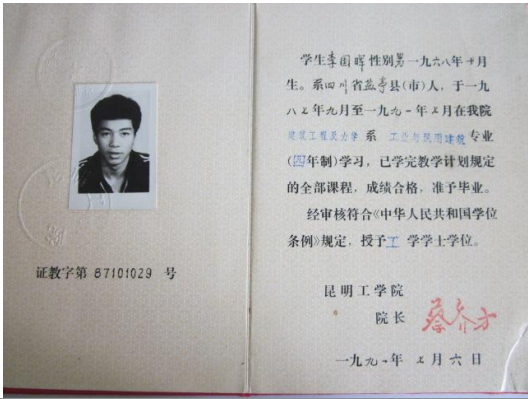 证教字第 87101029 号
学生李国晖性别男一九六八年十月
生。系四川省盐亭县(市)人,于一九
八七年九月至一九九一年七月在我院
建筑工程及力学 系 工业与民用建筑 专业
(四年制)学习,已学完教学计划规定
的全部课程,成绩合格,准予毕业。
经审核符合《中华人民共和国学位
条例》规定,授予工 学学士学位。
昆明工学院
院长
一九九一年 七月六日